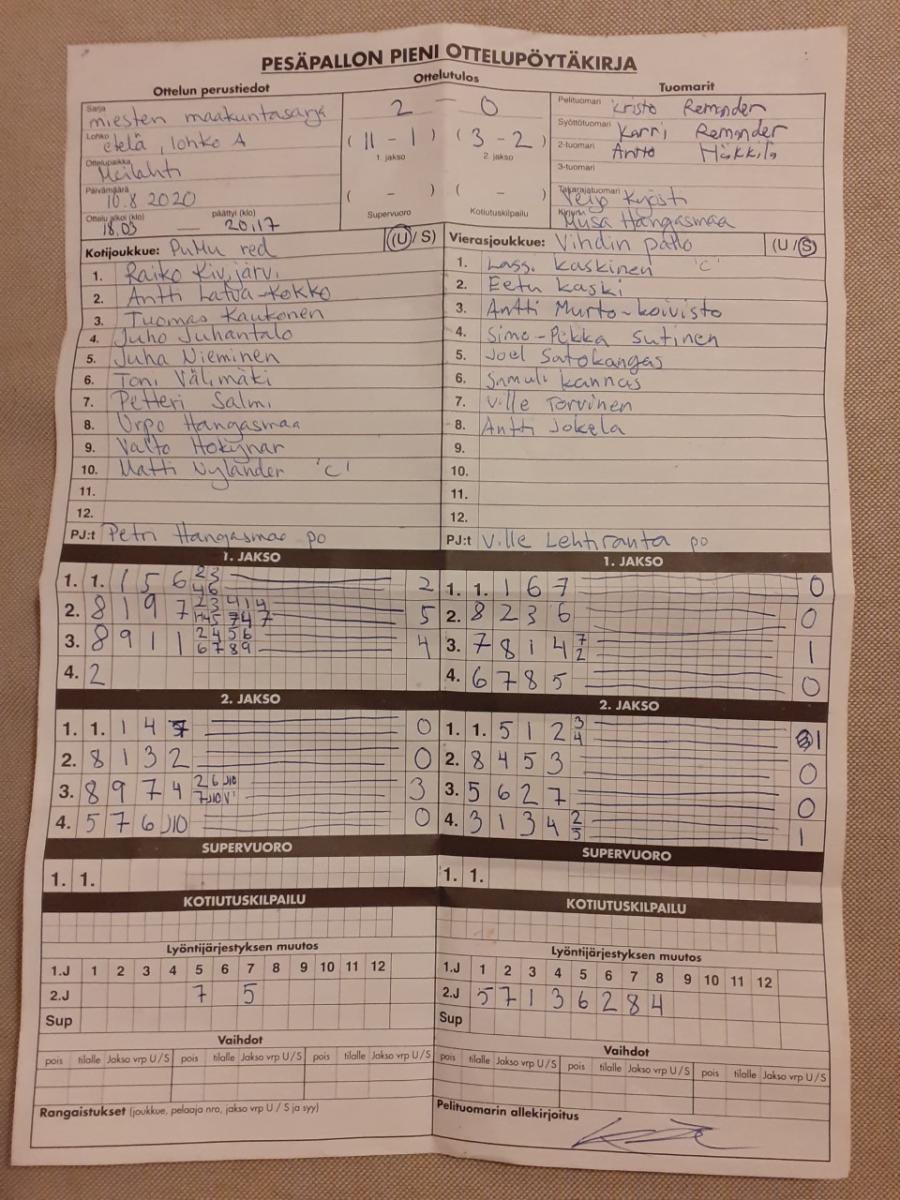 PESÄPALLON PIENI OTTELUPÖYTÄKIRJA
Ottelun perustiedot
Sarja miesten maakuntasarja
Lohko etelä, lohko A
Ottelupaikka Meilahti
Päivämäärä 10.8 2020
Ottelu alkoi (klo) 18.03 — päättyi (klo) 20.17
Ottelutulos
2 — 0
( 11 - 1 ) ( 3 - 2 )
1. jakso 2. jakso
( - ) ( - )
Supervuoro Kotiutuskilpailu
Tuomarit
Pelituomari Kristo Remander
Syöttötuomari Karri Remander
2-tuomari Antto Häkkilä
3-tuomari
Takarajatuomari Veijo
Kirjuri Musa Hangasmaa
Kotijoukkue: PuMu red (U/S)
1. Raiko Kivijärvi
2. Antti Latva-Kokko
3. Tuomas Kaukonen
4. Juho Juhantalo
5. Juha Nieminen
6. Toni Välimäki
7. Petteri Salmi
8. Urpo Hangasmaa
9. Valto Hokynar
10. Matti Nyländer 'C'
11.
12.
PJ:t Petri Hangasmaa po
Vierasjoukkue: Vihdin pallo (U/S)
1. Lassi Kaskinen 'C'
2. Eetu Kaski
3. Antti Murto-Koivisto
4. Simo-Pekka Sutinen
5. Joel Satokangas
6. Samuli Kannas
7. Ville Torvinen
8. Antti Jokela
9.
10.
11.
12.
PJ:t Ville Lehtiranta po
1. JAKSO
1. 1. 1 5 6 23 46 2
2. 8 1 9 7 5
3. 8 9 1 1 2456 6789 4
4. 2
1. JAKSO
1. 1. 1 6 7 0
2. 8 2 3 6 0
3. 7 8 1 4 7 2 1
4. 6 7 8 5 0
2. JAKSO
1. 1. 1 4 0
2. 8 1 3 2 0
3. 8 9 7 4 2 6 J10 3
4. 5 7 6 J10 0
2. JAKSO
1. 1. 5 1 2 3 4 1
2. 8 4 5 3 0
3. 5 6 2 7 0
4. 3 1 3 4 2 5 1
SUPERVUORO
1. 1.
SUPERVUORO
1. 1.
KOTIUTUSKILPAILU
KOTIUTUSKILPAILU
Lyöntijärjestyksen muutos
1.J 1 2 3 4 5 6 7 8 9 10 11 12
2.J 7 5
Sup
Lyöntijärjestyksen muutos
1.J 1 2 3 4 5 6 7 8 9 10 11 12
2.J 5 7 1 3 6 2 8 4
Sup
Vaihdot
pois tilalle Jakso vrp U/S pois tilalle Jakso vrp U/S pois tilalle Jakso vrp U/S
Vaihdot
pois tilalle Jakso vrp U/S pois tilalle Jakso vrp U/S pois tilalle Jakso vrp U/S
Rangaistukset (joukkue, pelaaja nro, jakso vrp U / S ja syy)
Pelituomarin allekirjoitus